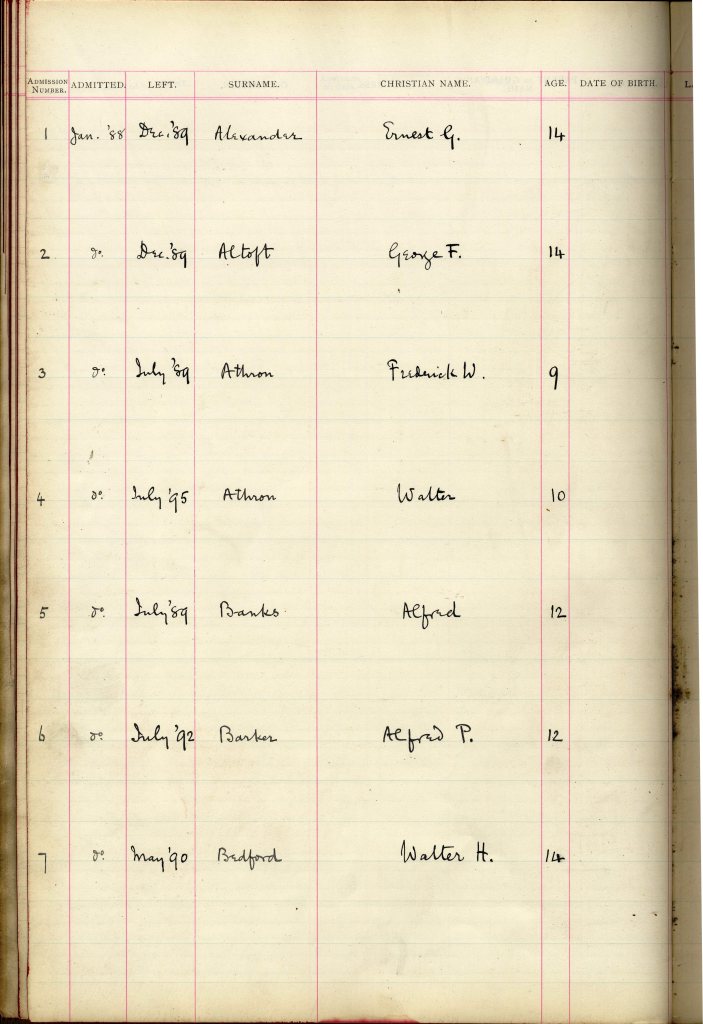 ADMISSION NUMBER. ADMITTED. LEFT. SURNAME. CHRISTIAN NAME. AGE. DATE OF BIRTH. L
1 Jan. '88 Dec. '89 Alexander Ernest G. 14
2 do. Dec. '89 Altoft George F. 14
3 do. July '89 Athron Frederick W. 9
4 do. July '95 Athron Walter 10
5 do. July '89 Banks Alfred 12
6 do. July '92 Barker Alfred P. 12
7 do. May '90 Bedford Walter H. 14